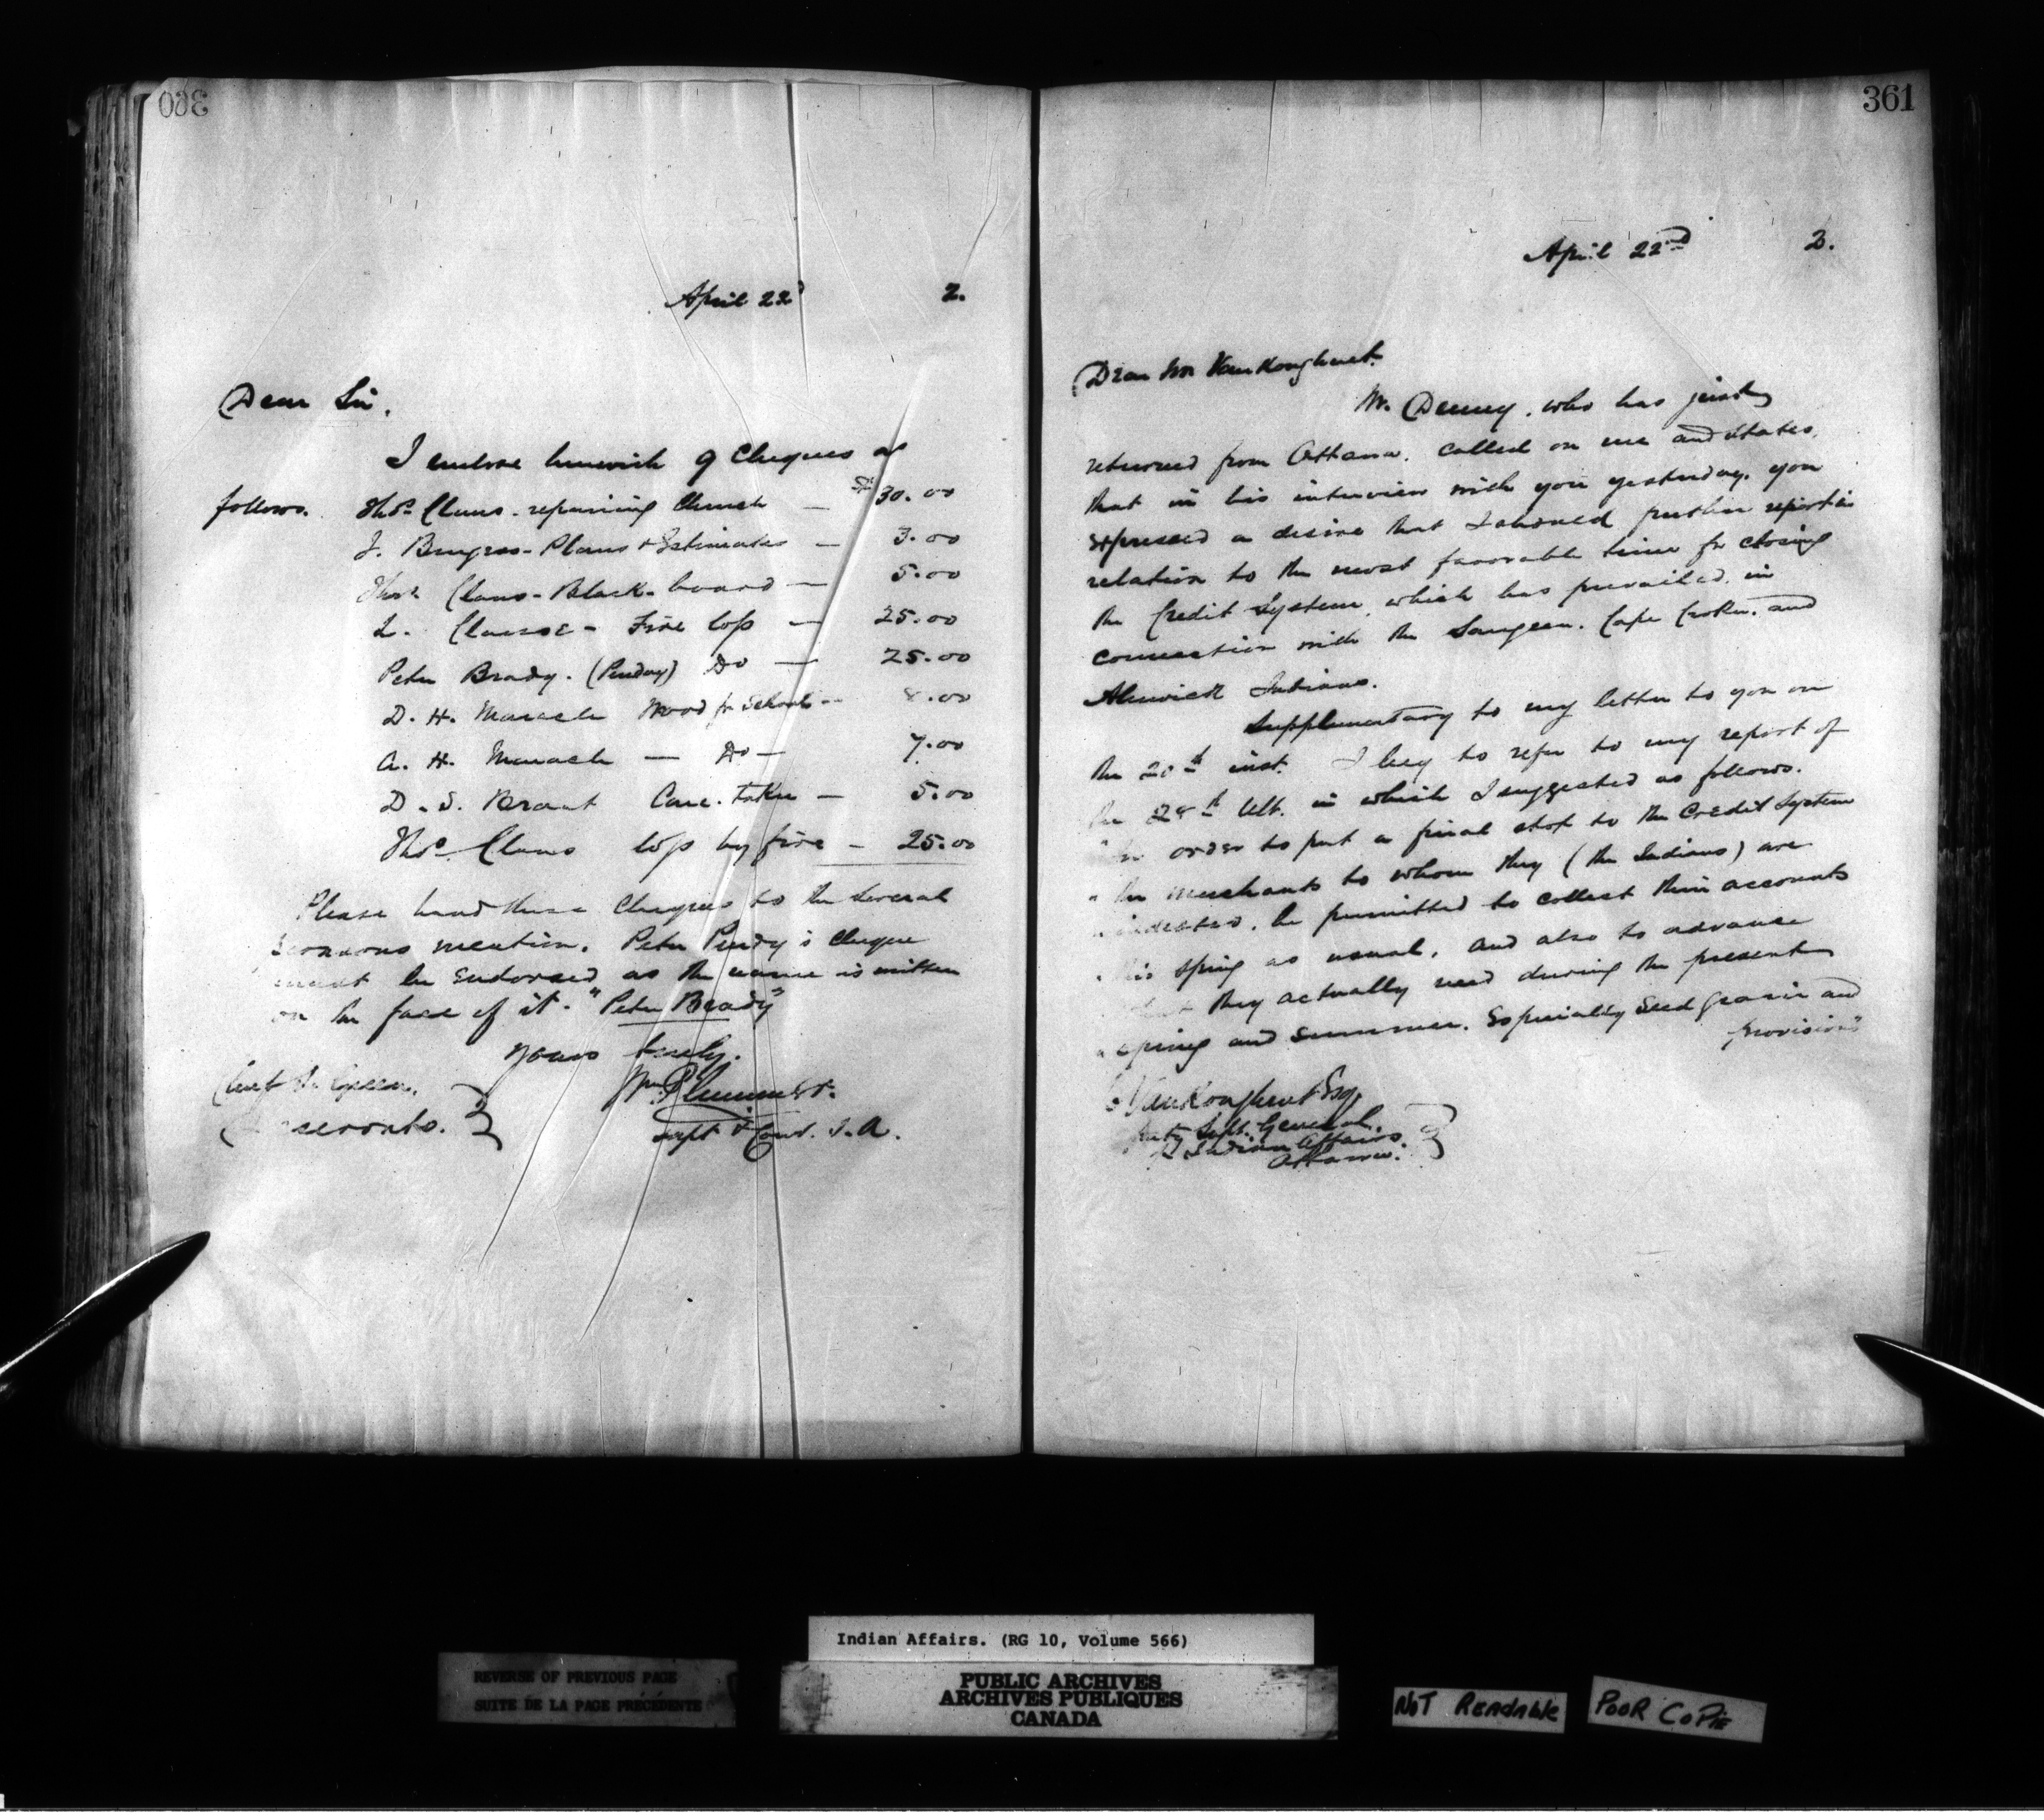 360
April 22d 2.
Dear Sir,
I enclose herewith 9 Cheques as
follows. Thos. Claus - repairing Church — $30.00
J. - Plans & Estimates — 3.00
Thos Claus - Black-board — 5.00
L. Clause - Fire loss — 25.00
Peter Brady. (Purdy) Do — 25.00
D. H. Maracle Wood for School — 8.00
A. H. Maracle — Do — 7.00
D. S. Brant Care-taker — 5.00
Thos. Claus loss by fire — 25.00
Please hand these Cheques to the several
persons mention. Peter Purdy's cheque
must be Endorsed as the name is written
on the face of it. "Peter Brady"
Yours truly.
Wm Plummer.
Supt & Com. I.A.
Green.
Deseronto.
361
April 22nd 2.
Dear Mr VanKoughnet.
Mr. Denny, who has just
returned from Ottawa. called on me and states,
that in his interview with you yesterday. you
expressed a desire that I should further report in
relation to the most favorable time for closing
the Credit System, which has prevailed, in
connection with the Saugeen. Cape Croker. and
Alnwick Indians.
Supplementary to my letter to you on
the 20th inst. I beg to refer to my report of
the 28th Ult. in which I suggested as follows.
"In order to put a final stop to the Credit System
" the merchants to whom they (the Indians) are
" indebted, be permitted to collect their accounts
" this spring as usual, and also to advance
" what they actually need during the present
" spring and summer. Especially Seed grain and
provisions"
VanKoughnet Esq,
Deputy Supt. General,
of Indian Affairs.
Ottawa.
Indian Affairs. (RG 10, Volume 566)
REVERSE OF PREVIOUS PAGE
SUITE DE LA PAGE PRÉCÉDENTE
PUBLIC ARCHIVES
ARCHIVES PUBLIQUES
CANADA
NOT READABLE
POOR COPIE